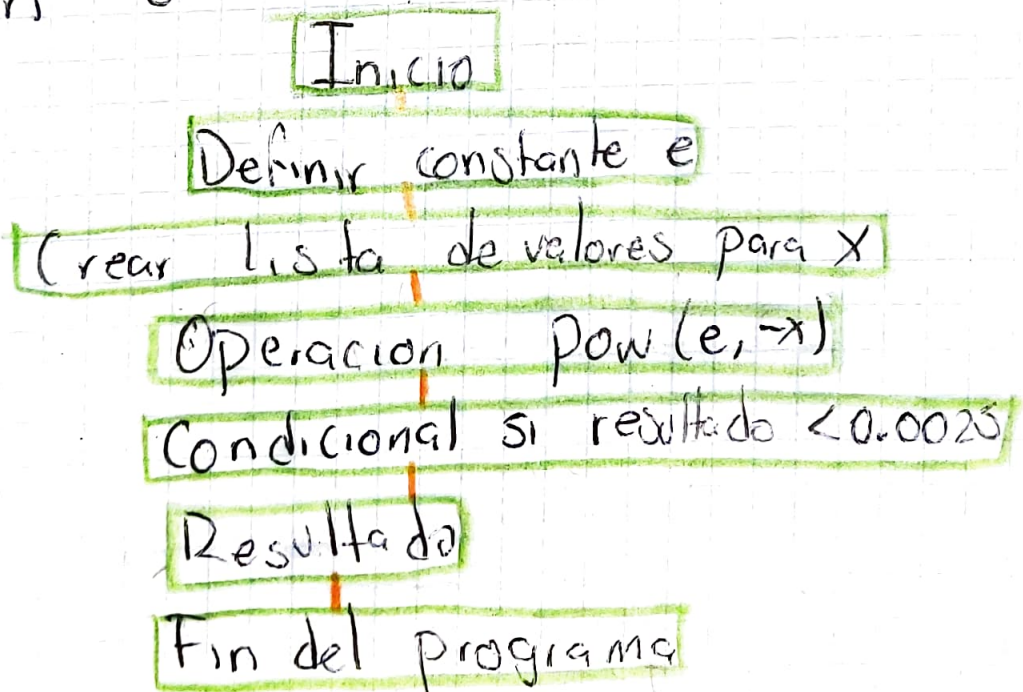 Inicio
Definir constante e
Crear lista de valores para X
Operacion pow(e,-x)
Condicional si resultado <0.0025
Resultado
Fin del programa